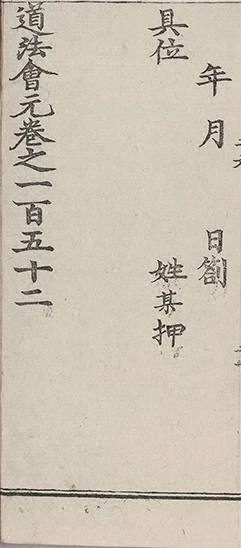 年 月 日劄
具位 姓某押
道法會元卷之一百五十二